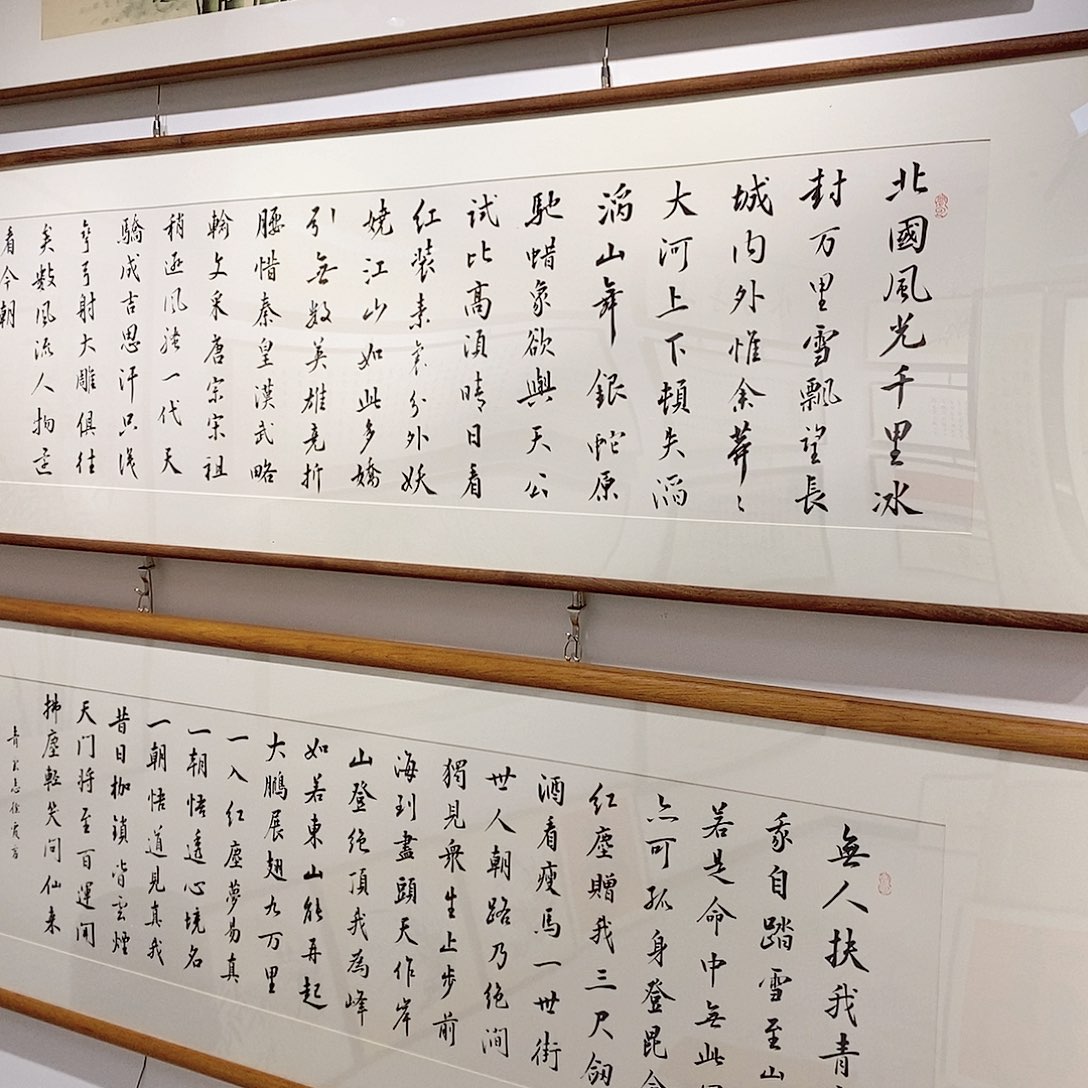 北國風光千里冰
封万里雪飘望長
城内外惟余莽〻
大河上下頓失滔
滔山舞銀蛇原
馳蜡象欲與天公
試比高須晴日看
红装素裹分外妖
娆江山如此多嬌
引無数英雄竞折
腰惜秦皇漢武略
輸文采唐宗宋祖
稍逊風骚一代天
驕成吉思汗只识
弯弓射大雕俱往
矣数風流人物还
看今朝
無人扶我青
我自踏雪至山
若是命中無此
亦可孤身登昆
红塵贈我三尺劒
酒看瘦馬一世街
世人朝路乃绝澗
獨見衆生止步前
海到盡頭天作岸
山登绝頂我為峰
如若東山能再起
大鵬展翅九万里
一入红塵夢易真
一朝悟透心境名
一朝悟道見真我
昔日枷鎖皆雲煙
天门将至百運间
拂塵輕笑问仙来